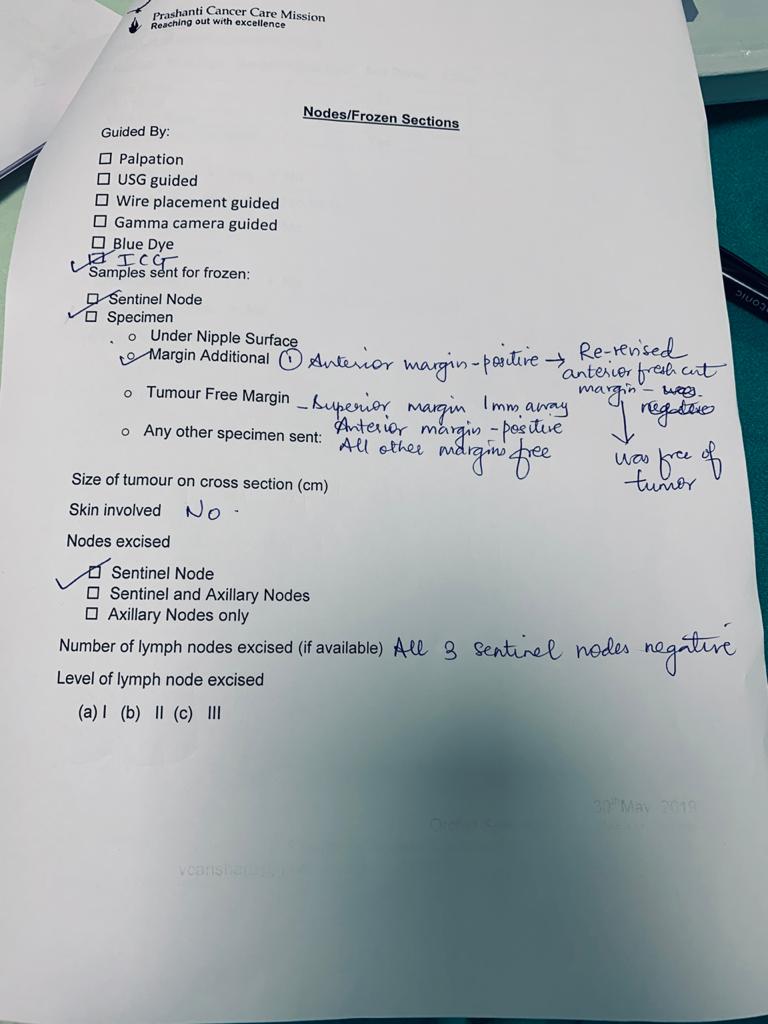 Prashanti Cancer Care Mission
Reaching out with excellence
Nodes/Frozen Sections
Guided By:
☐ Palpation
☐ USG guided
☐ Wire placement guided
☐ Gamma camera guided
☐ Blue Dye
☑ ICG
Samples sent for frozen:
☑ Sentinel Node
☑ Specimen
o Under Nipple Surface
o Margin Additional ① Anterior margin - positive → Re-revised
anterior fresh cut
margin - was negative
↓
was free of
tumor
o Tumour Free Margin - Superior margin 1mm away
Anterior margin - positive
o Any other specimen sent: All other margins free
Size of tumour on cross section (cm)
Skin involved No
Nodes excised
☑ Sentinel Node
☐ Sentinel and Axillary Nodes
☐ Axillary Nodes only
Number of lymph nodes excised (if available) All 3 sentinel nodes negative
Level of lymph node excised
(a) I (b) II (c) III
30th May 2019